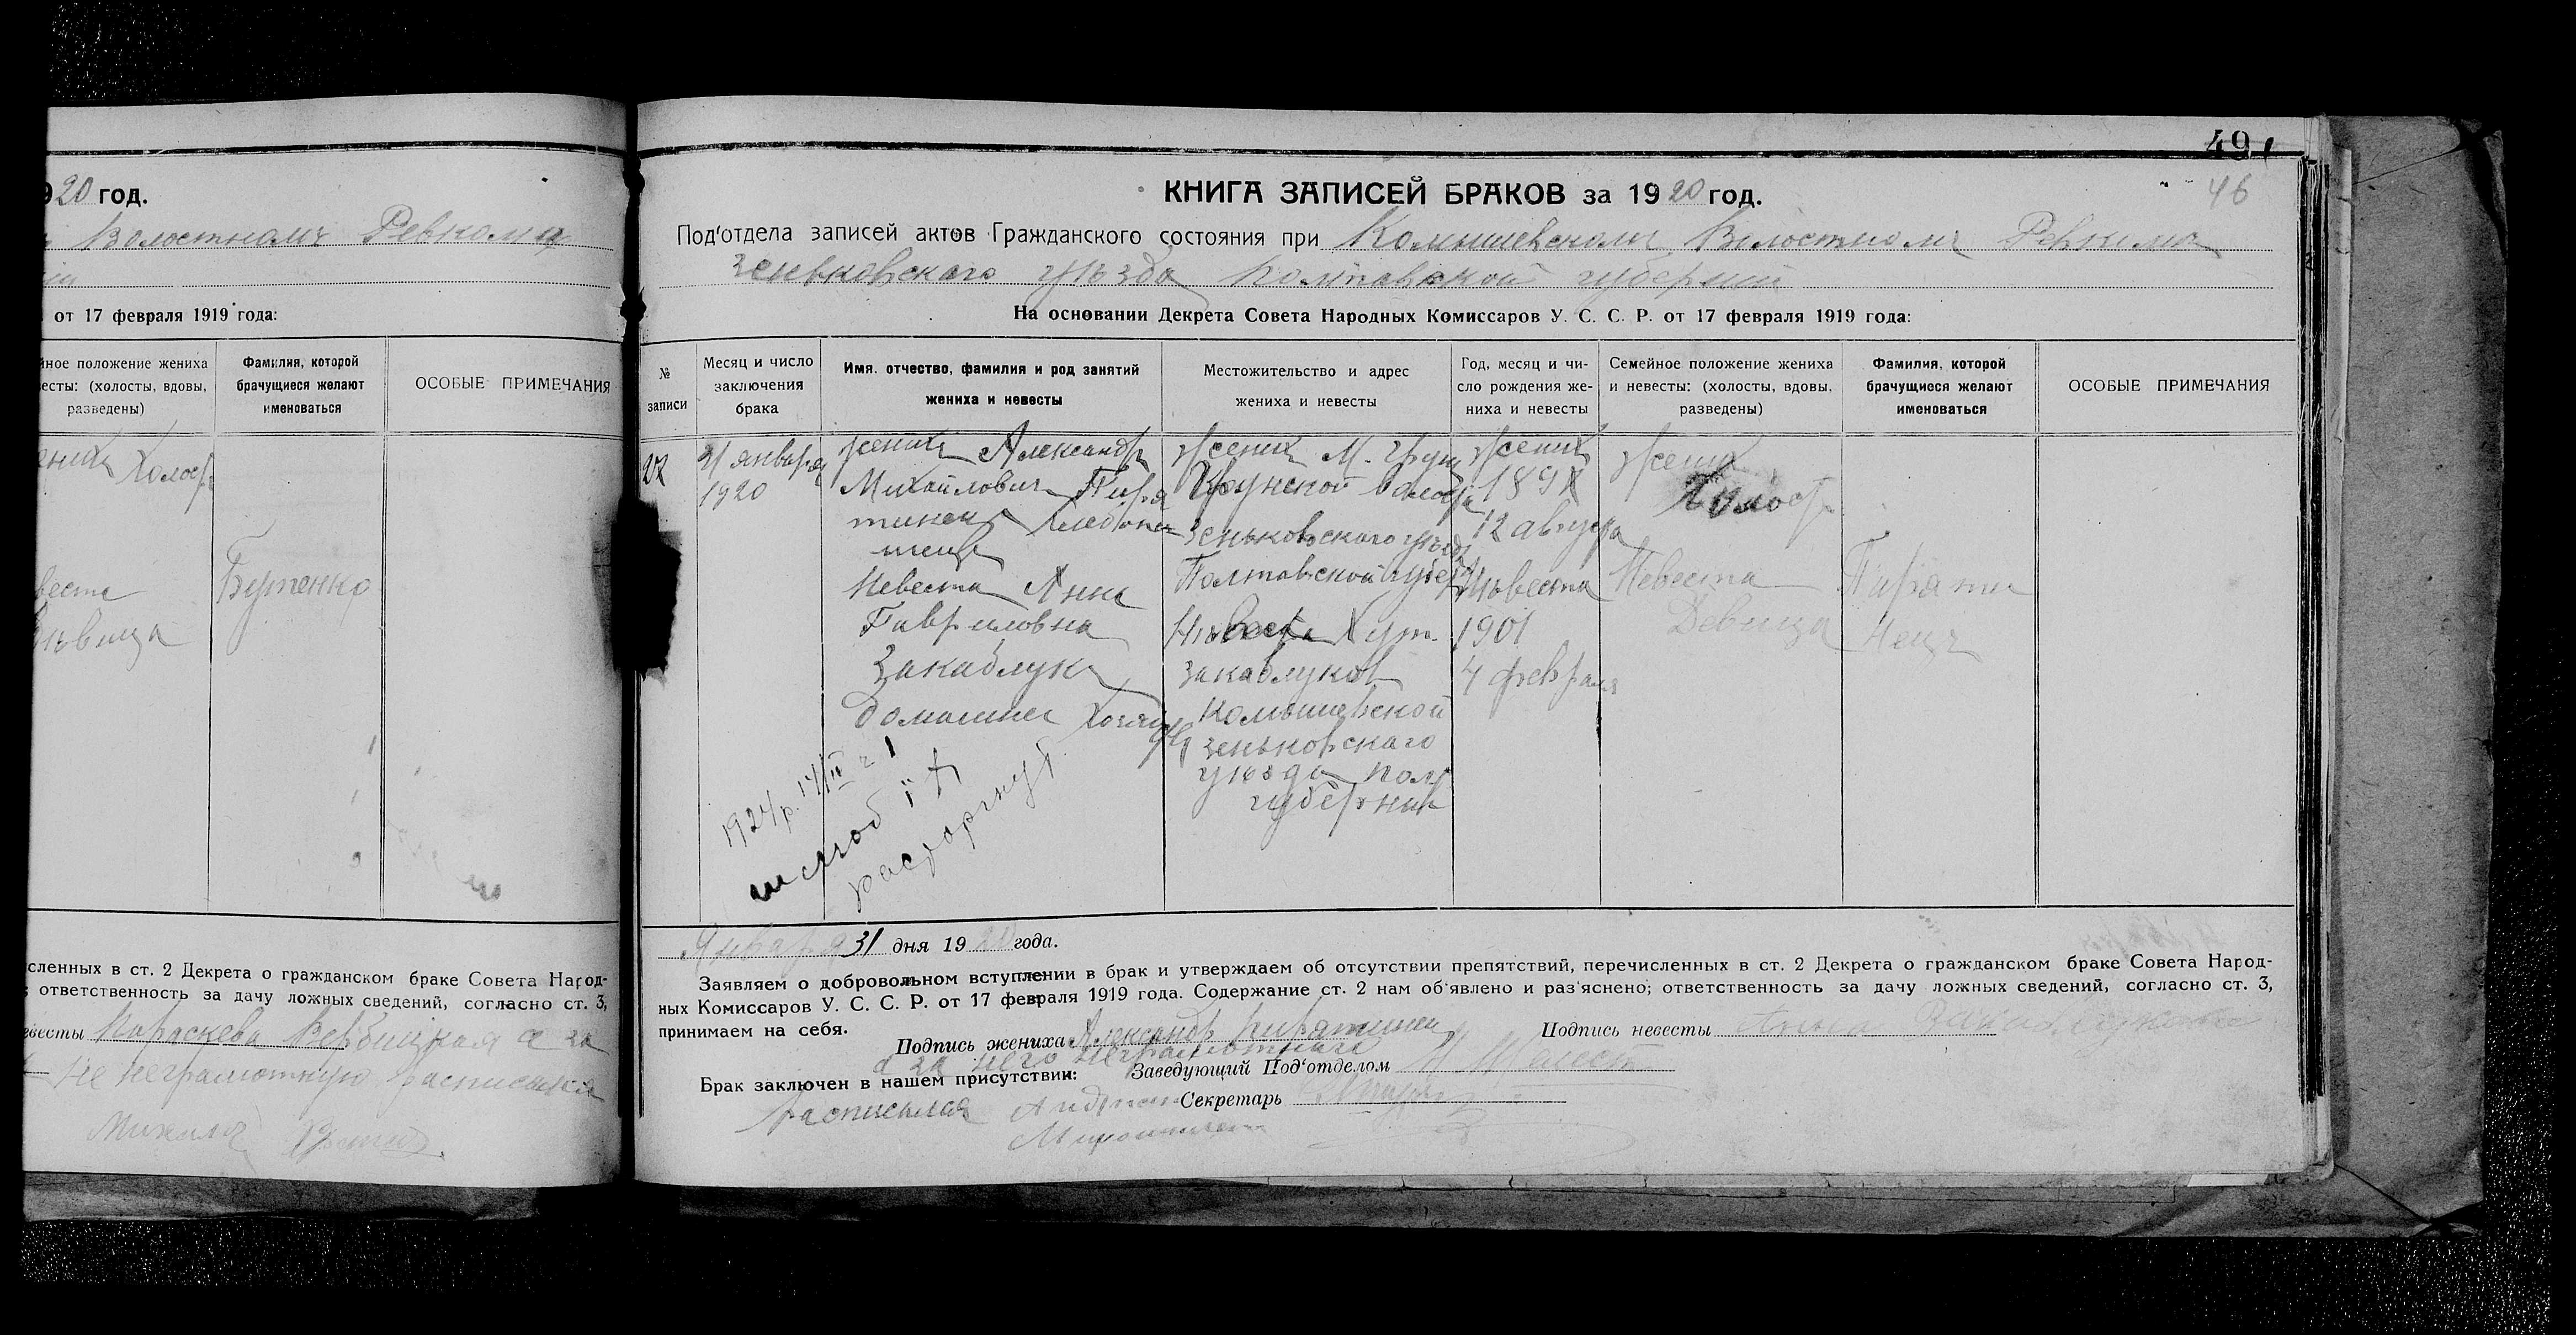 20 год.
Волостномъ Ревкома
от 17 февраля 1919 года:
ное положение жениха
весты: (холосты, вдовы,
разведены)
Фамилия, которой
брачущиеся желают
именоваться
ОСОБЫЕ ПРИМЕЧАНИЯ
Холост
веста
Бутенко
сленных в ст. 2 Декрета о гражданском браке Совета Народ-
ответственность за дачу ложных сведений, согласно ст. 3,
евесты Параскева Вербицкая а за
Не неграмотную
49
46
КНИГА ЗАПИСЕЙ БРАКОВ за 1920 год.
Под'отдела записей актов Гражданского состояния при Комышевскомъ Волостномъ Ревкома
Зеньковского уѣзда Полтавской губернии
На основании Декрета Совета Народных Комиссаров У. С. С. Р. от 17 февраля 1919 года:
№
записи
Месяц и число
заключения
брака
Имя, отчество, фамилия и род занятий
жениха и невесты
Местожительство и адрес
жениха и невесты
Год, месяц и чи-
сло рождения же-
ниха и невесты
Семейное положение жениха
и невесты: (холосты, вдовы,
разведены)
Фамилия, которой
брачущиеся желают
именоваться
ОСОБЫЕ ПРИМЕЧАНИЯ
31 января
1920
жених Александр
Михайлович Пиря
тинец
Невеста Анна
Гавриловна
Закаблукъ
домашнее
1924 р.
шлюб
расторгнут
жених М. Грунь
Грунской
Зеньковского уѣзда
Полтавской
Невеста Хут.
Закаблуков
Комышевской
Зеньковскаго
уѣзда Пол
губернии
жених
189
12 августа
Невеста
1901
4 февраля
жених
Холост
Невеста
Девица
Пиряти
нецъ
Января 31 дня 1920 года.
Заявляем о добровольном вступлении в брак и утверждаем об отсутствии препятствий, перечисленных в ст. 2 Декрета о гражданском браке Совета Народ-
ных Комиссаров У. С. С. Р. от 17 февраля 1919 года. Содержание ст. 2 нам об'явлено и раз'яснено; ответственность за дачу ложных сведений, согласно ст. 3,
принимаем на себя.
Подпись жениха Александръ Пирятинец
Подпись невесты Анна
а за него неграмотнаго
Брак заключен в нашем присутствии:
Заведующий Под'отделом
расписался
Секретарь